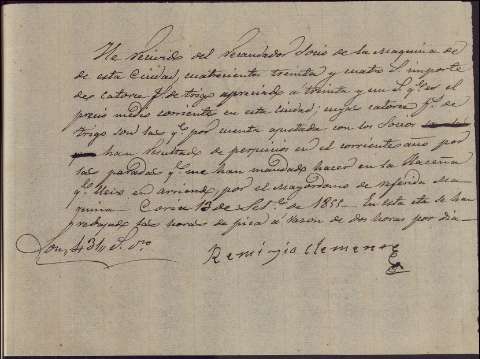 He recivido del recaudador Socio de la Maquina de
de esta Ciudad, cuatrocientos treinta y cuatro r.s importe
de catorce f.s de trigo apreciado a treinta y un r.s q.e es el
precio medio corriente en esta ciudad; cuyas catorce f.s de
trigo son las q.e por cuenta ajustada con los Socios
han resultado de perjuicios en el corriente año por
las paradas q.e me han mandado hacer en la Haceña
q.e llevo en arriendo por el Mayordomo de referida Ma
quina. Coria 13 de de 1855. En esta cta se han
las horas de pica a razon de dos horas por dia
Son 434 r.s v.on
Remigio Clemente